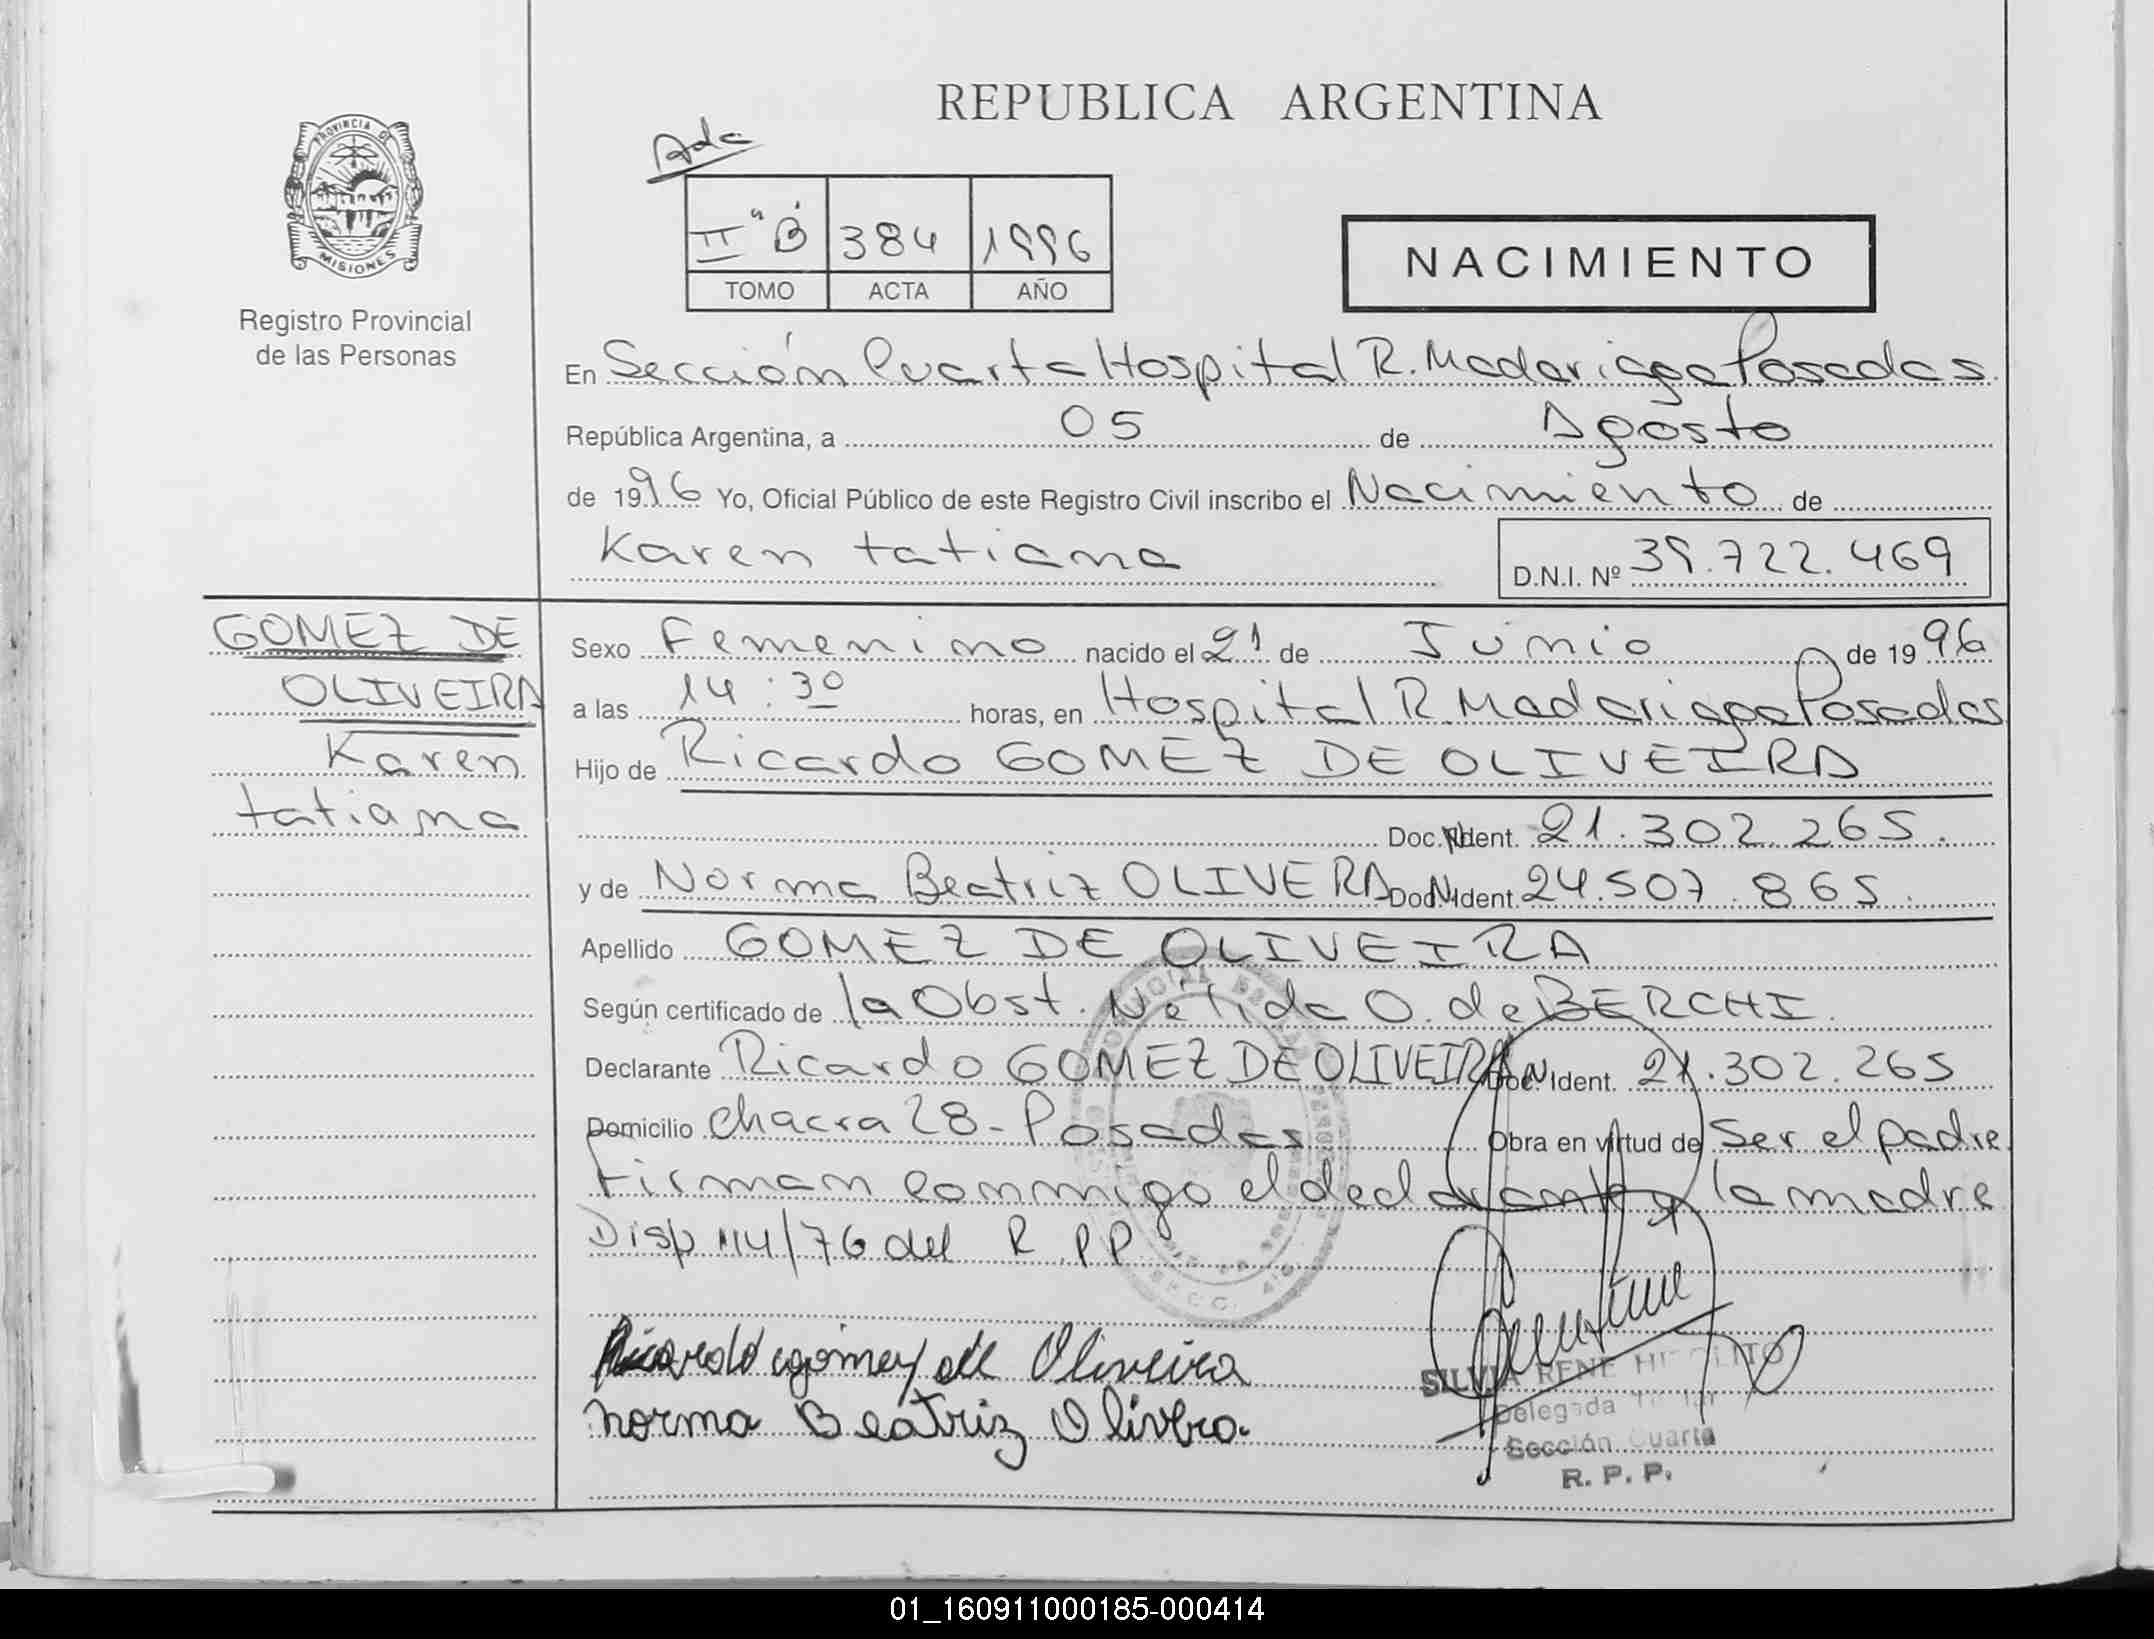 REPUBLICA ARGENTINA
PROVINCIA DE
MISIONES
Registro Provincial
de las Personas
II "B" 384 1996
TOMO ACTA AÑO
NACIMIENTO
En Sección Cuarta Hospital R. Madariaga Posadas
República Argentina, a 05 de Agosto
de 1996 Yo, Oficial Público de este Registro Civil inscribo el Nacimiento de
Karen tatiana D.N.I. Nº 39.722.469
GOMEZ DE
OLIVEIRA
Karen
tatiana
Sexo Femenino nacido el 21 de Junio de 1996
a las 14:30 horas, en Hospital R. Madariaga Posadas
Hijo de Ricardo GOMEZ DE OLIVEIRA
Doc. Ident. 21.302.265.
y de Norma Beatriz OLIVERA Doc. Ident. 24.507.865.
Apellido GOMEZ DE OLIVEIRA
Según certificado de la Obst. Nélida O. de BERCHI.
Declarante Ricardo GOMEZ DE OLIVEIRA Doc. Ident. 21.302.265
Domicilio Chacra 28 - Posadas Obra en virtud de Ser el padre.
Firman conmigo el declarante y la madre
Disp 114/76 del R.P.P.
Ricardo gómez de Oliveira
norma Beatriz Olivera.
SILVIA RENE HIPOLITO
Delegada Titular
Sección Cuarta
R. P. P.
01_160911000185-000414